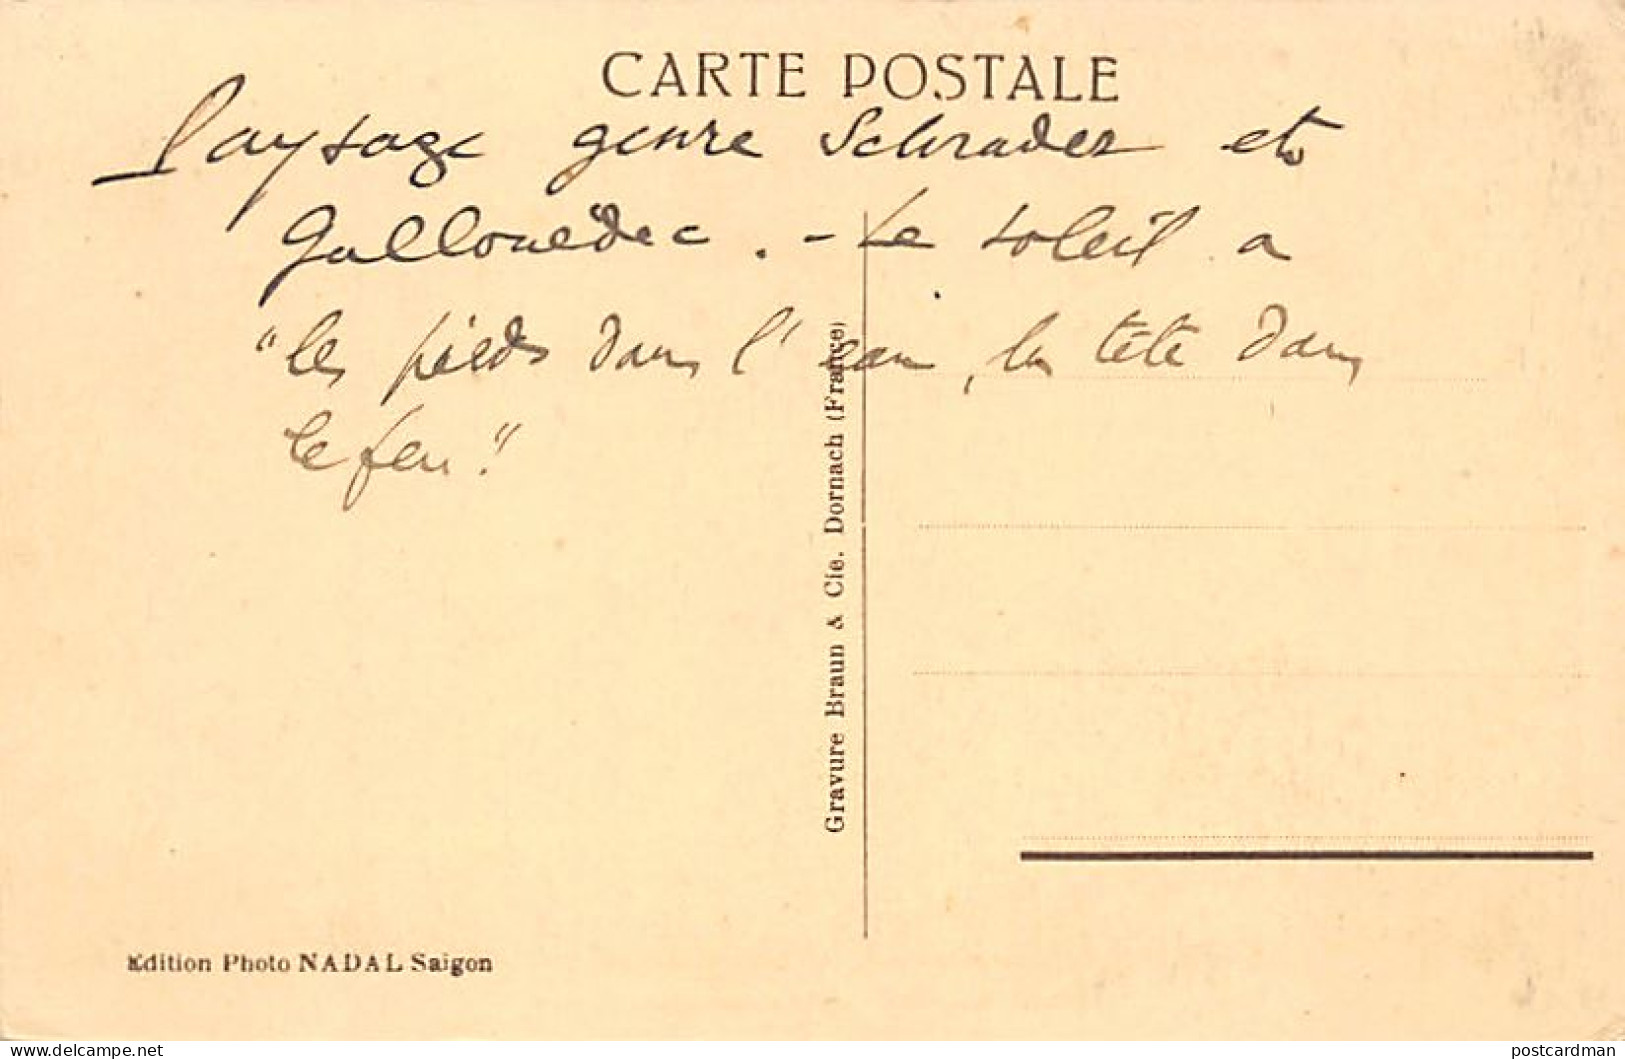 CARTE POSTALE
Paysage genre Schrader et
Gallouëdec. - Le soleil a
"les pieds dans l'eau, la tête dans
le feu."
Gravure Braun & Cie. Dornach (France)
Edition Photo NADAL Saigon
www.delcampe.net
postcardman